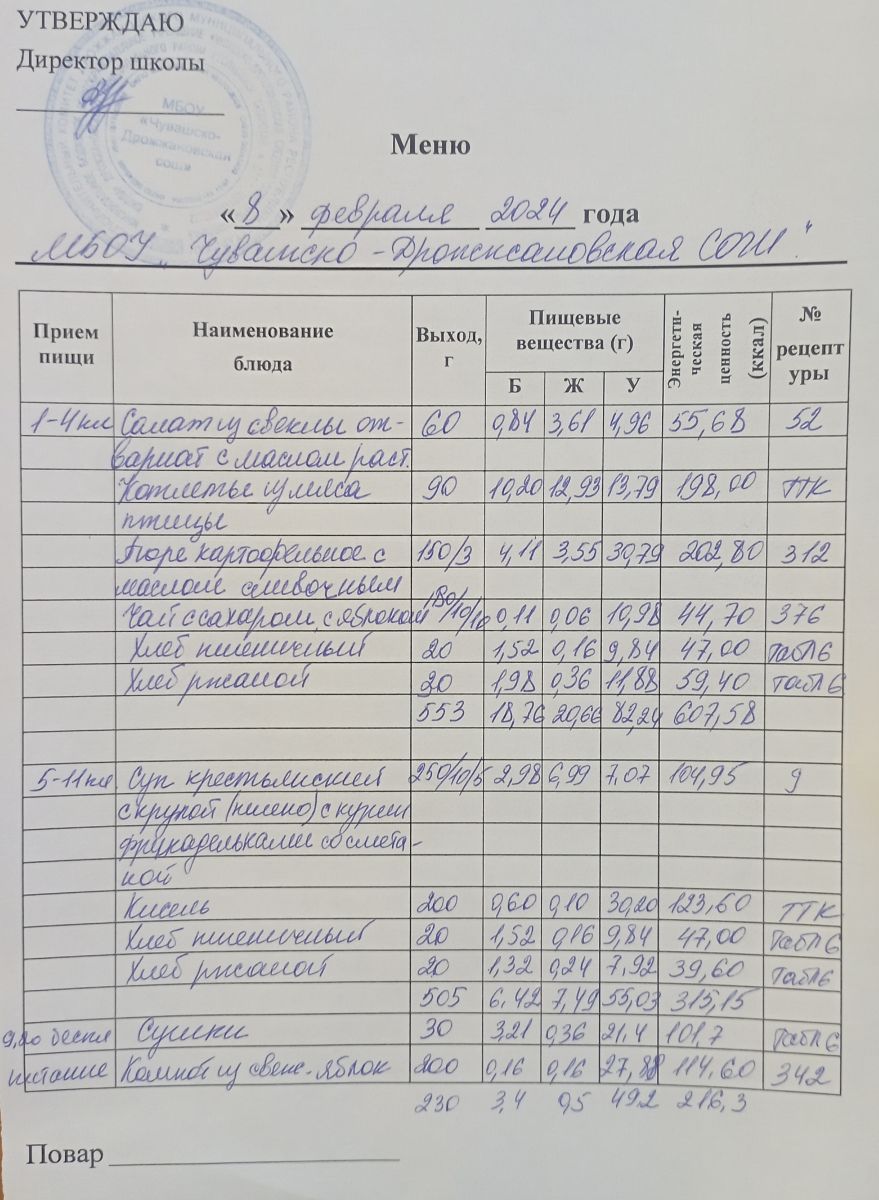 УТВЕРЖДАЮ
Директор школы
МБОУ
«Чувашско-
Дрожжановская
сош»
Меню
« 8 » февраля 2024 года
МБОУ „Чувашско - Дрожжановская СОШ."
Прием пищи Наименование блюда Выход, г Пищевые вещества (г) Энергетическая ценность (ккал) № рецептуры
Б Ж У
1-4 кл Салат из свеклы от- 60 0,84 3,61 4,96 55,68 52
вариат с маслом раст.
Котлеты из мяса 90 10,20 12,93 13,79 198,00 ТТК
птицы
Пюре картофельное с 150/3 4,11 3,55 30,79 202,80 312
маслом сливочным
Чай с сахаром, с яблоком 180/10/10 0,11 0,06 10,98 44,70 376
Хлеб пшеничный 20 1,52 0,16 9,84 47,00 Табл 6
Хлеб ржаной 20 1,98 0,36 11,88 59,40 Табл 6
553 18,76 20,66 82,24 607,58
5-11 кл Суп крестьянский 250/10/5 2,98 6,99 7,07 104,95 9
с крупой (пшено) с курин
фрикадельками со смета-
ной
Кисель 200 0,60 0,10 30,20 123,60 ТТК
Хлеб пшеничный 20 1,52 0,16 9,84 47,00 Табл 6
Хлеб ржаной 20 1,32 0,24 7,92 39,60 Табл 6
505 6,42 7,49 55,03 315,15
беспл Сушки 30 3,21 0,36 21,4 101,7 Табл 6
питание Компот из свеж. яблок 200 0,16 0,16 27,88 114,60 342
230 3,4 0,5 49,2 216,3
Повар